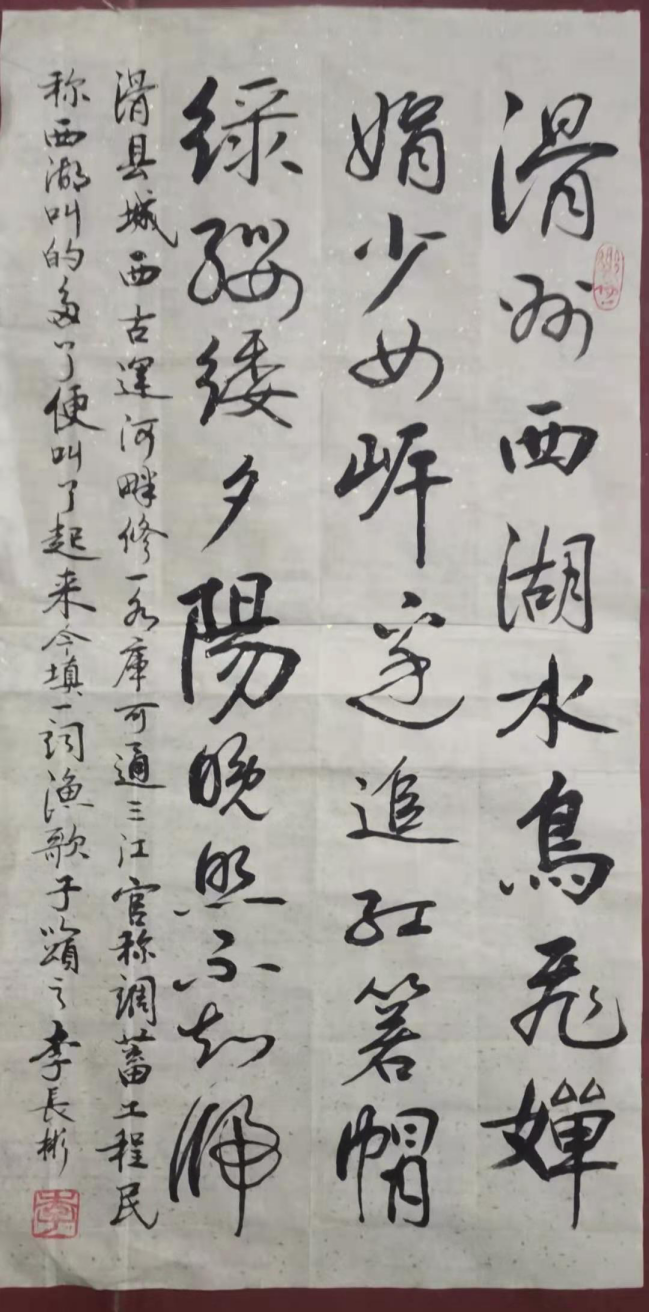 滑州西湖水鳥飛嬋
娟少女岸邊追紅箬帽
綠纓緌夕陽晚照不知歸
滑县城西古運河畔修一水庫可通三江官称調蓄工程民
称西湖叫的多了便叫了起来今填一詞漁歌子以頌之李長彬
李